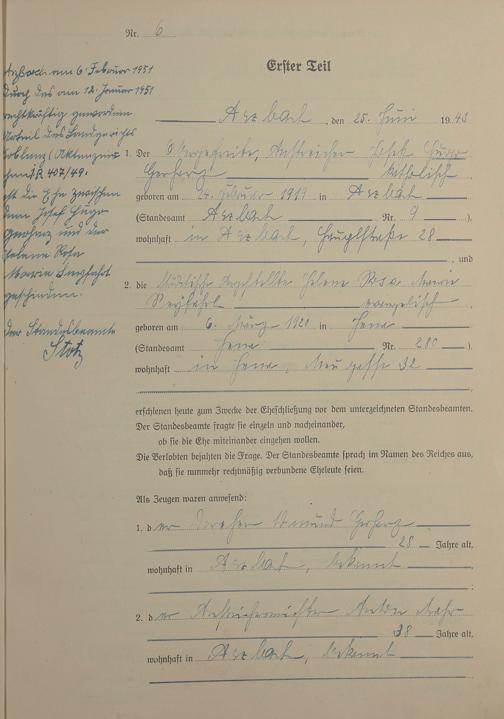 Nr. 6
Arzbach am 6. Februar 1951
Durch das am 12. Januar 1951
rechtskräftig gewordene
Urteil des Landgerichts
Koblenz (Aktenzeichen
407/49.
ist die Ehe zwischen
dem Josef Hugo
Gerharz und der
Helene Rosa
Maria
geschieden.
Der Standesbeamte
Stotz
Erster Teil
Arzbach, den 25. Juni 1943
1. Der Obergefreite, Anstreicher Josef Hugo
Gerharz katholisch
geboren am 24. Februar 1919 in Arzbach
(Standesamt Arzbach Nr. 9).
wohnhaft in Arzbach, Hauptstraße 28
, und
2. die Angestellte Helene Rosa Maria
evangelisch
geboren am 6. März 1920 in Jena
(Standesamt Jena Nr. 280).
wohnhaft in Jena, 32
erschienen heute zum Zwecke der Eheschließung vor dem unterzeichneten Standesbeamten.
Der Standesbeamte fragte sie einzeln und nacheinander,
ob sie die Ehe miteinander eingehen wollen.
Die Verlobten bejahten die Frage. Der Standesbeamte sprach im Namen des Reiches aus,
daß sie nunmehr rechtmäßig verbundene Eheleute seien.
Als Zeugen waren anwesend:
1. der Gerharz
28 Jahre alt,
wohnhaft in Arzbach, bekannt
2. der Anstreichermeister Anton
38 Jahre alt,
wohnhaft in Arzbach, bekannt